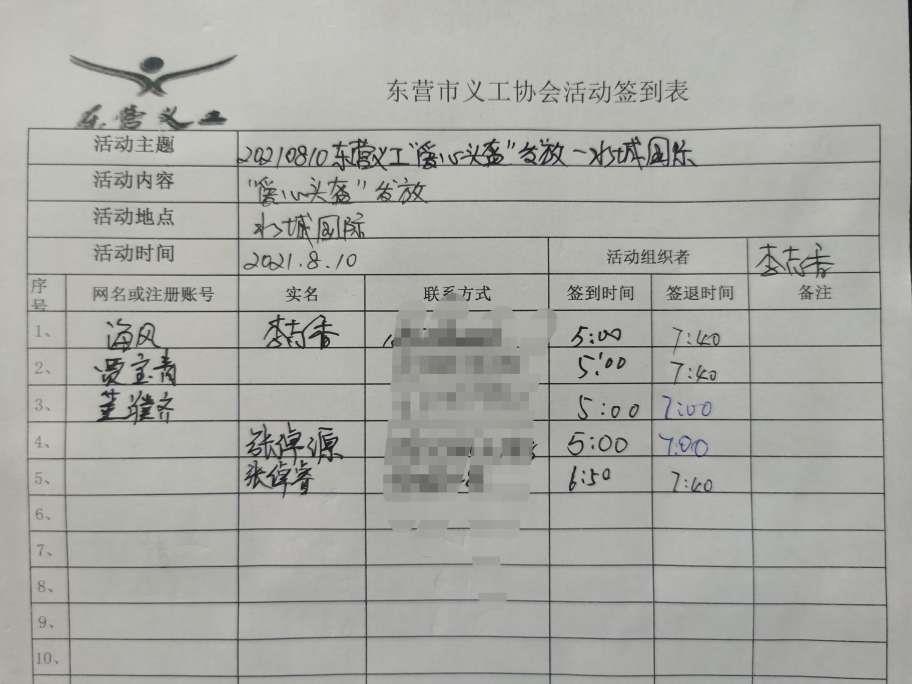 东营义工
东营市义工协会活动签到表
活动主题 20210810东营义工"爱心头盔"发放-水城国际
活动内容 "爱心头盔"发放
活动地点 水城国际
活动时间 2021.8.10 活动组织者 李志香
序号 网名或注册账号 实名 联系方式 签到时间 签退时间 备注
1、 海风 李志香 5:00 7:40
2、 贾宝青 5:00 7:40
3、 董濮齐 5:00 7:00
4、 张倬源 5:00 7:00
5、 张倬睿 6:50 7:40
6、
7、
8、
9、
10、